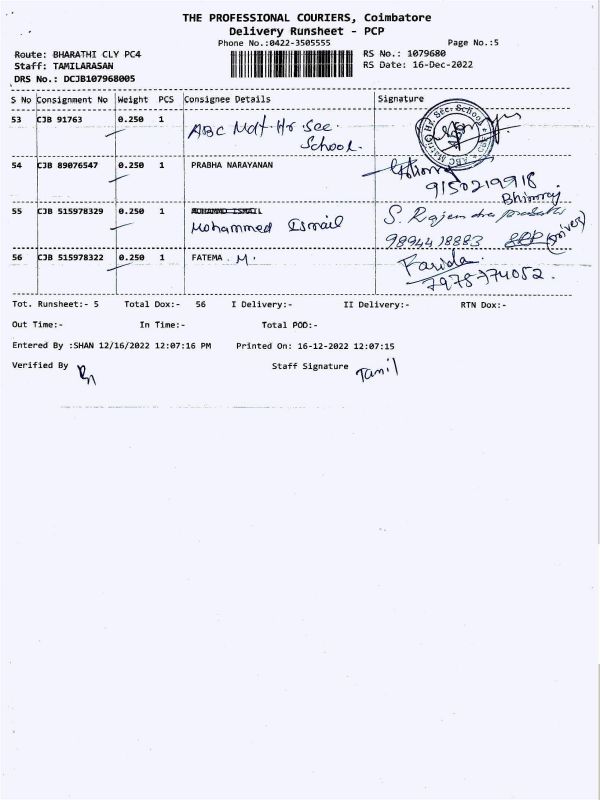 THE PROFESSIONAL COURIERS, Coimbatore
Delivery Runsheet - PCP
Phone No.:0422-3505555
Page No.:5
Route: BHARATHI CLY PC4
Staff: TAMILARASAN
DRS No.: DCJB107968005
RS No.: 1079680
RS Date: 16-Dec-2022
S No Consignment No Weight PCS Consignee Details Signature
53 CJB 91763 0.250 1 ABC Mat. Hr. Sec. School.
54 CJB 89076547 0.250 1 PRABHA NARAYANAN
9150219918
Bhimraj
55 CJB 515978329 0.250 1 MOHAMMD ISMAIL
Mohammed Ismail
S. Rajendra prasath
9894418883 (Driver)
56 CJB 515978322 0.250 1 FATEMA . M.
Farida
7978774052.
Tot. Runsheet:- 5 Total Dox:- 56 I Delivery:- II Delivery:- RTN Dox:-
Out Time:- In Time:- Total POD:-
Entered By :SHAN 12/16/2022 12:07:16 PM Printed On: 16-12-2022 12:07:15
Verified By Staff Signature Tamil